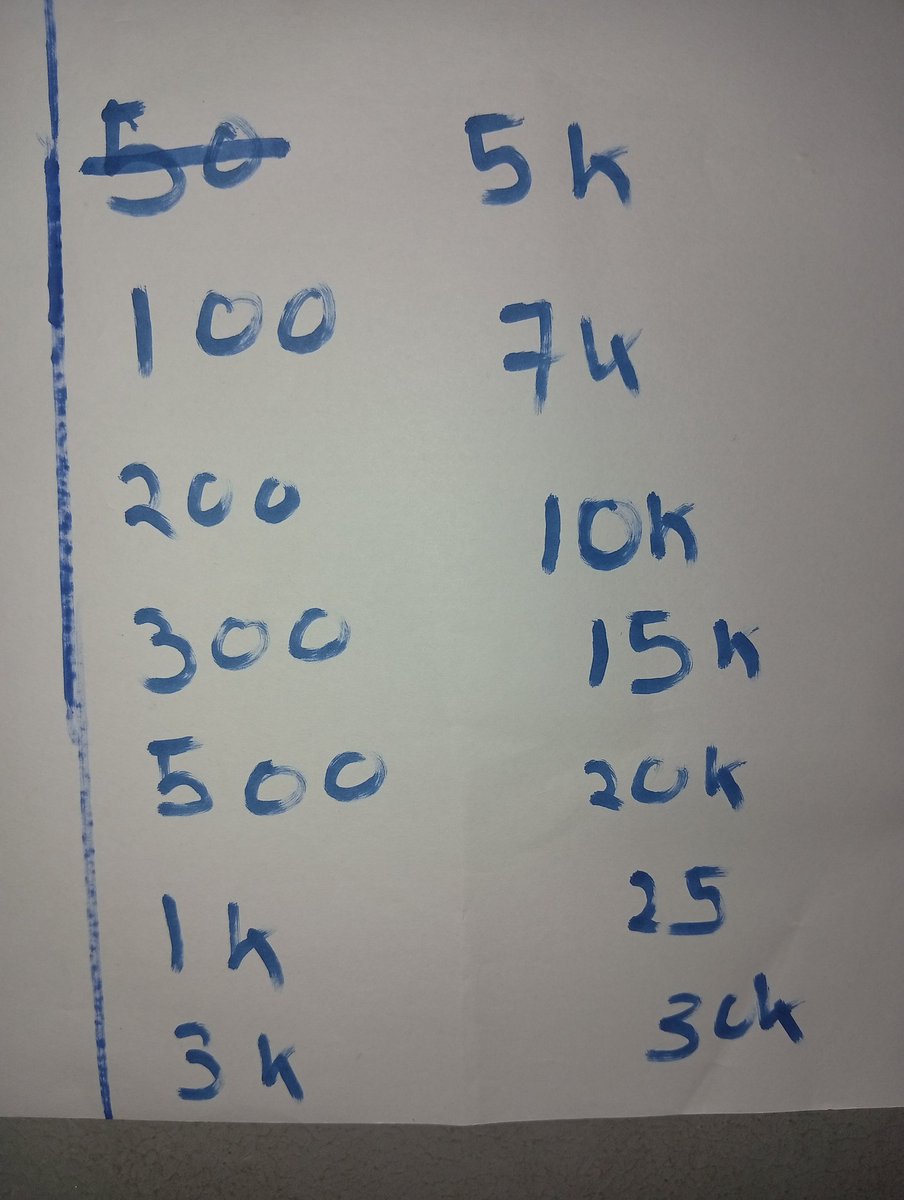 50
100
200
300
500
1k
3k
5k
7k
10k
15k
20k
25
30k